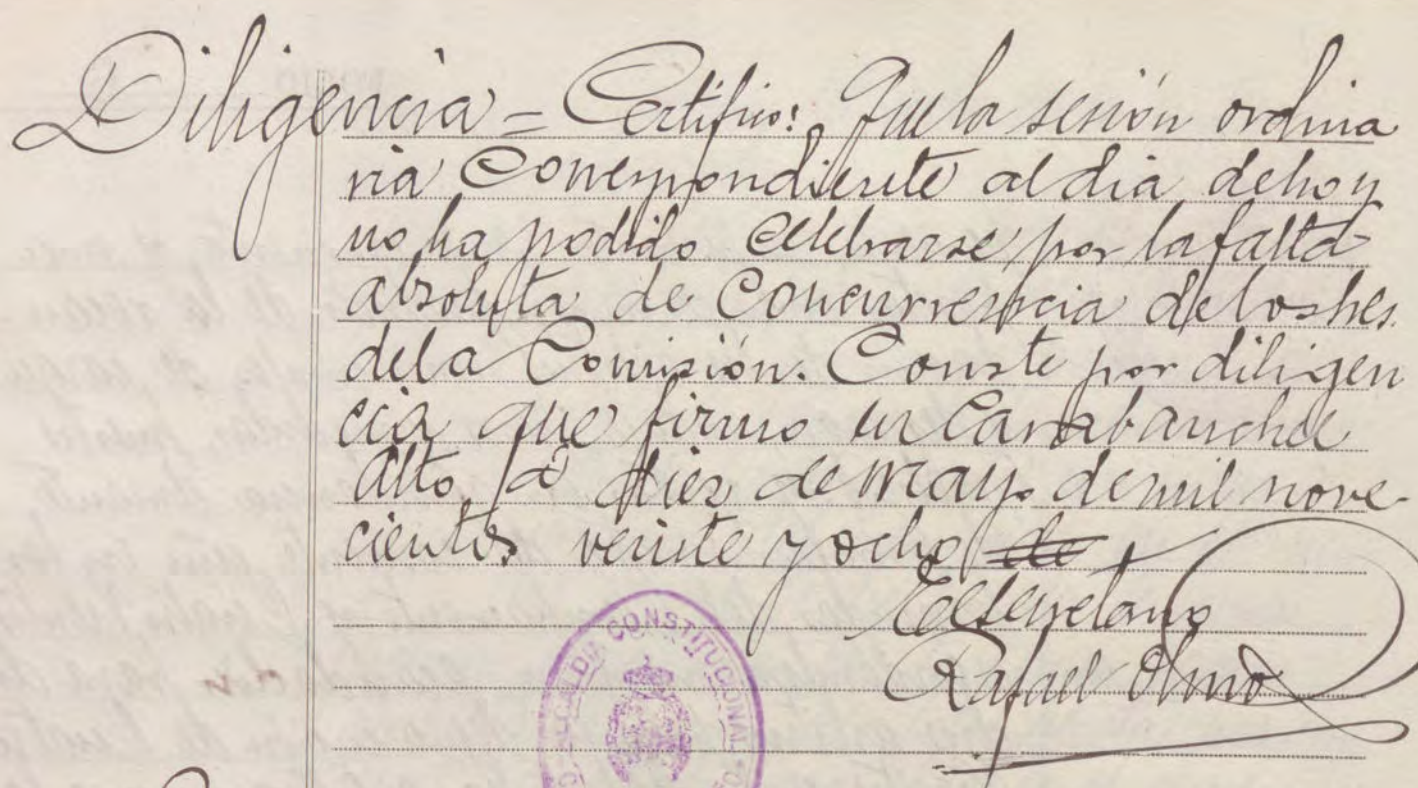 Diligencia = Certifico: Que la sesión ordina
ria correspondiente al dia de hoy
no ha podido celebrarse por la falta
absoluta de concurrencia de los Sres.
de la Comisión. Conste por diligen
cia que firmo en Carabanchel
Alto, a diez de mayo de mil nove-
cientos veinte y ocho de
El Secretario
Rafael Olmo
ALCALDIA CONSTITUCIONAL